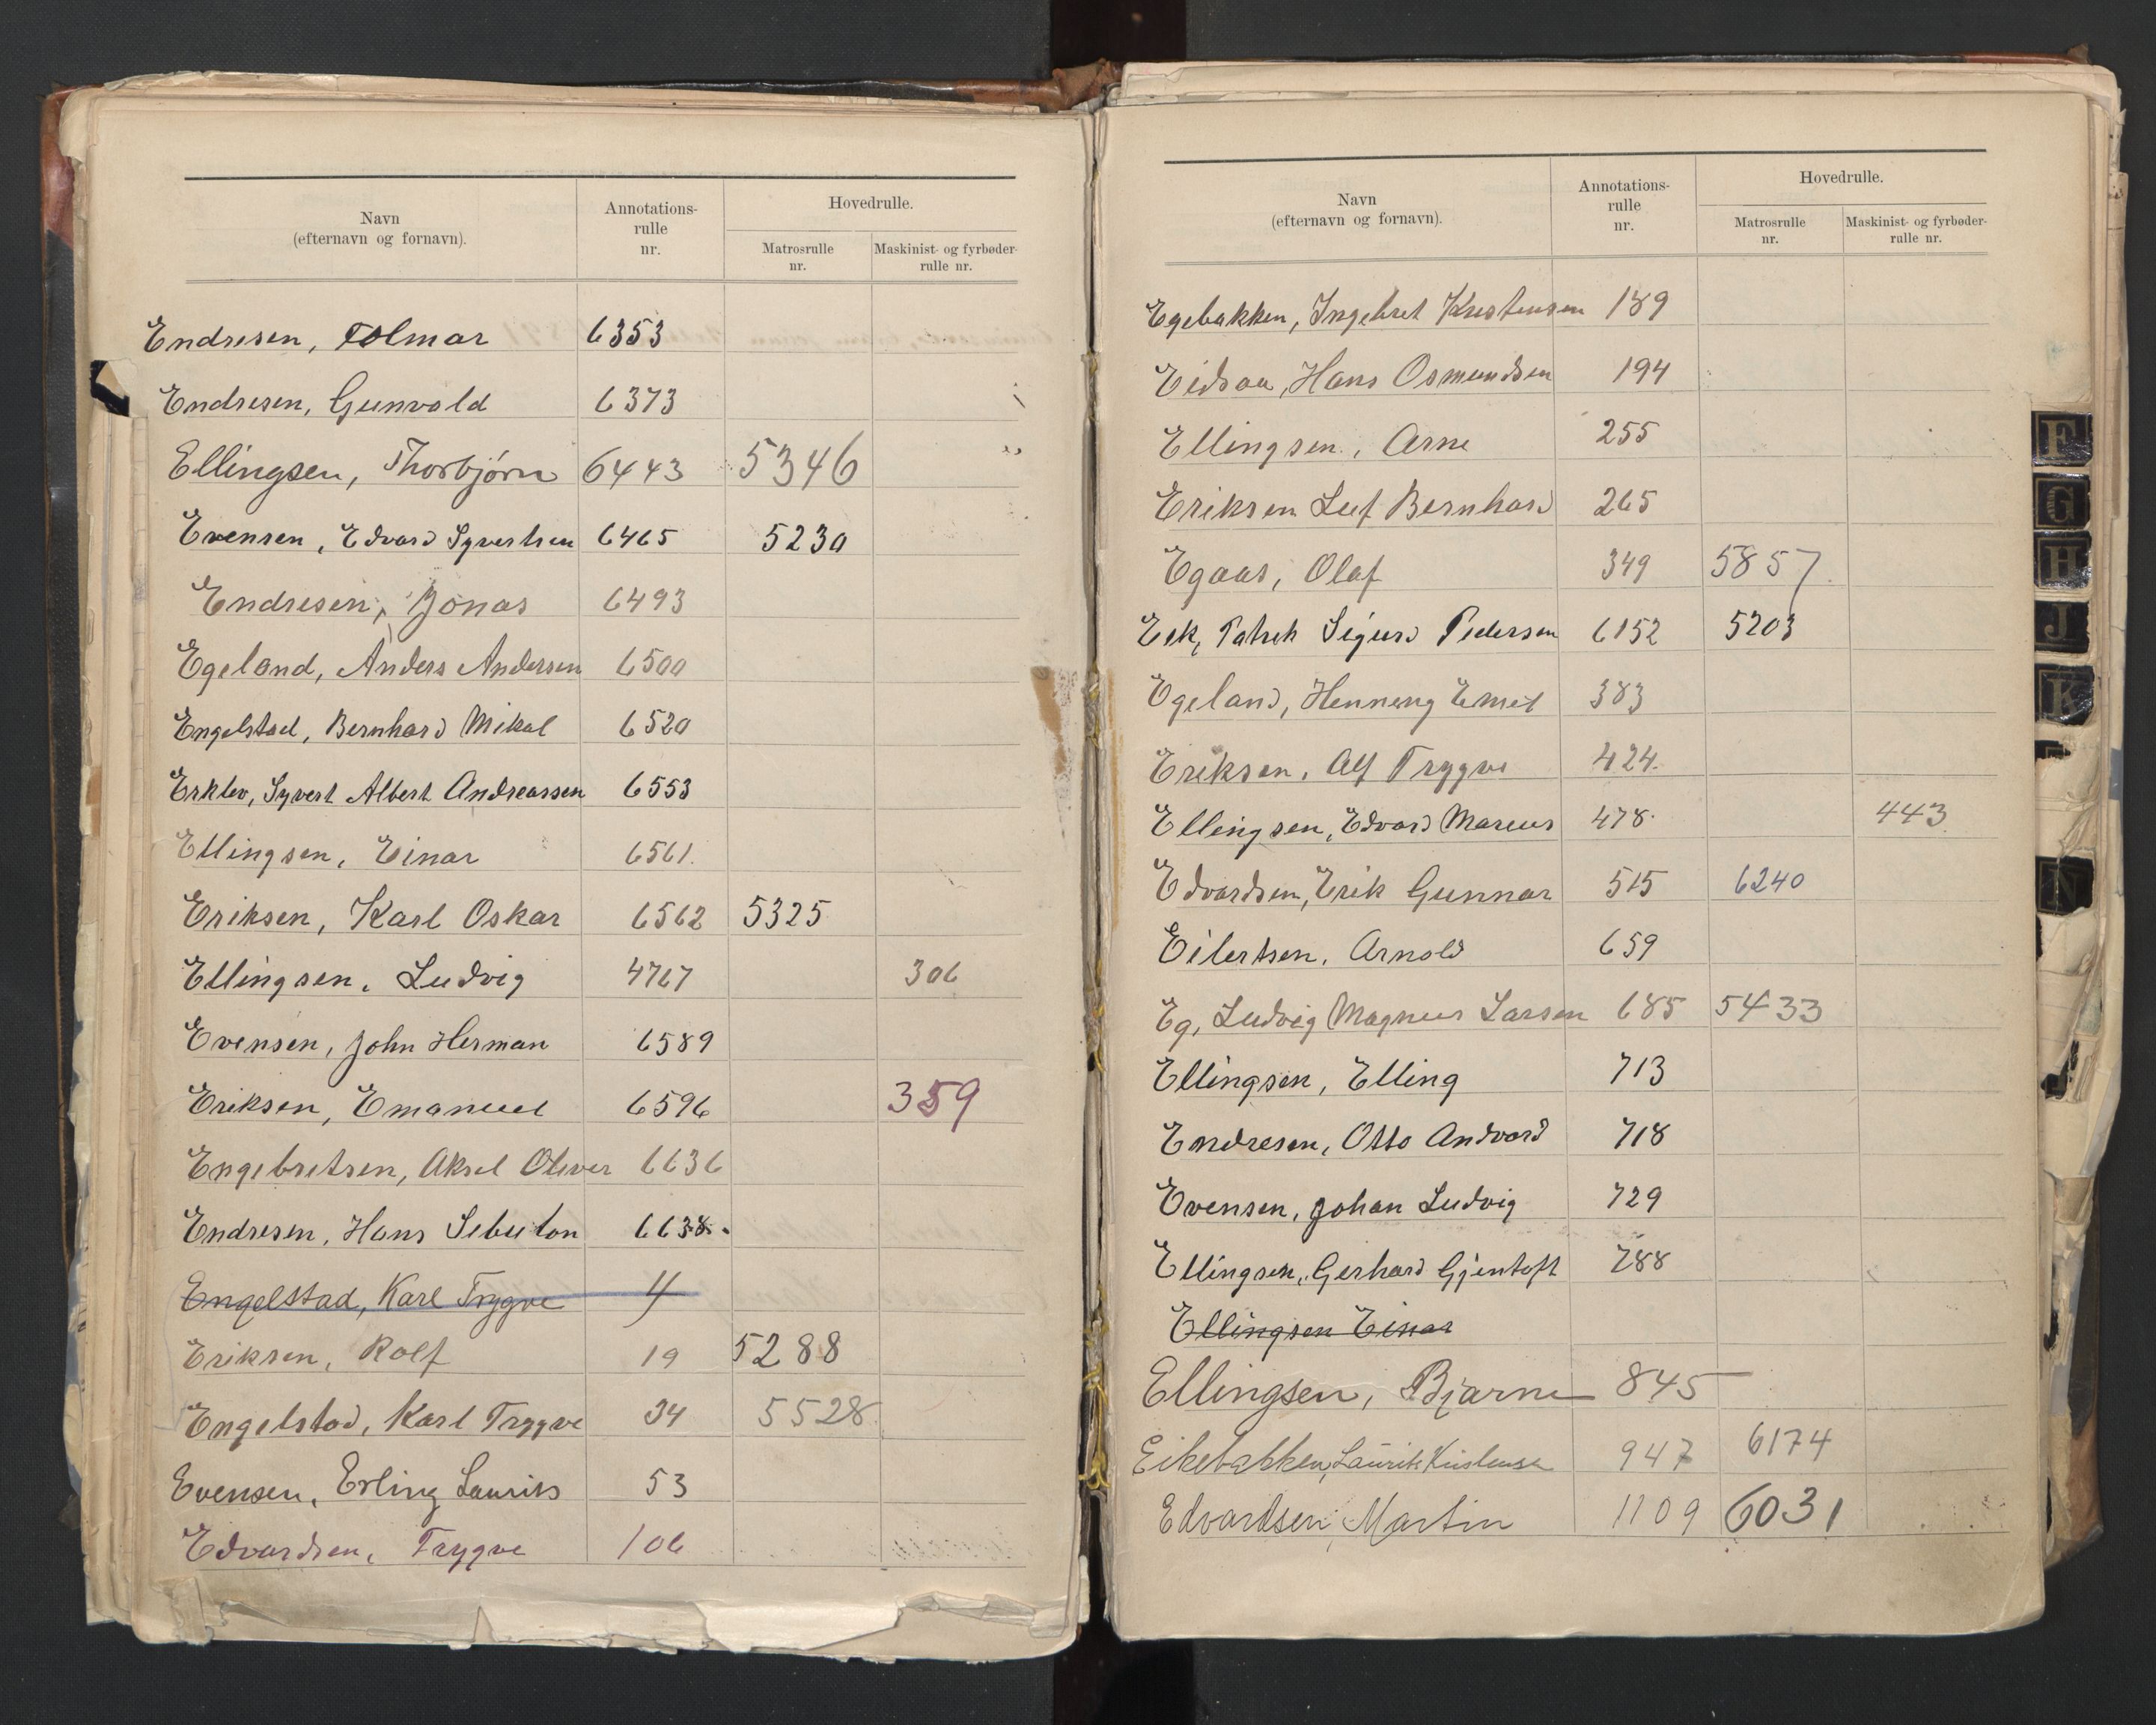 Navn
(efternavn og fornavn).
Annotations-
rulle
nr.
Hovedrulle.
Matrosrulle
nr.
Maskinist- og fyrbøder-
rulle nr.
Endresen, Tolmar 6353
Endresen, Gunvald 6373
Ellingsen, Thorbjørn 6443 5346
Evensen, Edvard Syvertsen 6465 5230
Endresen, Jonas 6493
Egeland, Anders Andersen 6500
Engelstad, Bernhard Mikal 6520
Erklev, Syvert Albert Andreassen 6553
Ellingsen, Einar 6561.
Eriksen, Karl Oskar 6562 5325
Ellingsen, Ludvig 4767 306
Evensen, John Herman 6589
Eriksen, Emanuel 6596 359
Engebretsen, Aksel Oliver 6636
Endresen, Hans Sebulon 6638.
Engelstad, Karl Trygve 4
Eriksen, Rolf 19 5288
Engelstad, Karl Trygve 34 5528
Evensen, Erling Laurits 53
Edvardsen, Trygve 106
Navn
(efternavn og fornavn).
Annotations-
rulle
nr.
Hovedrulle.
Matrosrulle
nr.
Maskinist- og fyrbøder-
rulle nr.
Egebakken, Ingebret Kristensen 189
Eidsaa, Hans Osmundsen 194
Ellingsen, Arne 255
Eriksen Leif Bernhard 265
Egaas, Olaf 349 5857
Eek, Patrik Sigurd Pedersen 6152 5203
Egeland, Henneng Emil 383
Eriksen, Alf Trygve 424.
Ellingsen, Edvard Marius 478. 443
Edvardsen, Erik Gunnar 515 6240
Eilertsen, Arnold 659
Eg, Ludvig Magnus Larsen 685 5433
Ellingsen, Elling 713
Endresen, Otto Andvard 718
Evensen, Johan Ludvig 729
Ellingsen, Gerhard Gjentoft 788
Ellingsen Einar
Ellingsen, Bjarne 845
Eikebakken, Laurits Kristensen 947 6174
Edvardsen, Martin 1109 6031
F
G
H
J
K
N